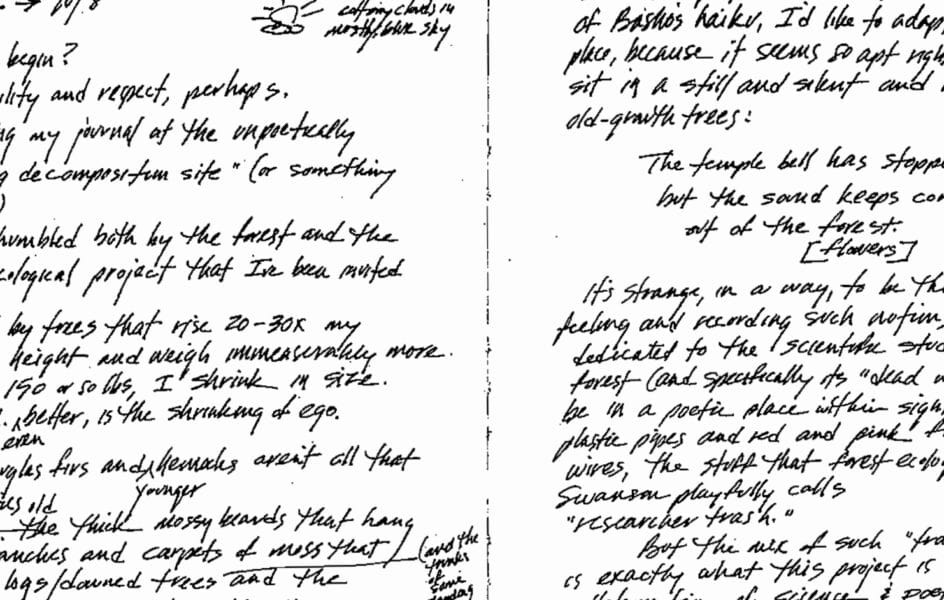 cottony clouds in
mostly blue sky
begin?
ility and respect, perhaps.
ng my journal at the unpoetically
g decomposition site" (or something
)
humbled both by the forest and the
cological project that I've been invited
by trees that rise 20-30x my
height and weigh immeasurably more.
150 or so lbs, I shrink in size.
better, is the shrinking of ego.
even
uglas firs and hemlocks aren't all that
younger
ies old
the thick mossy beards that hang
anches and carpets of moss that
(and the
trunks
of
some
standing
logs/downed trees and the
of Bashō's haiku, I'd like to adap
place, because it seems so apt righ
sit in a still and silent and
old-growth trees:
The temple bell has stopp
but the sound keeps com
out of the forest.
[flowers]
It's strange, in a way, to be th
feeling and recording such notion
dedicated to the scientific stud
forest (and specifically its "dead w
be in a poetic place within sigh
plastic pipes and red and pink f
wires, the stuff that forest ecolo
Swanson playfully calls
"researcher trash."
But the mix of such "tra
is exactly what this project is
of science & poe